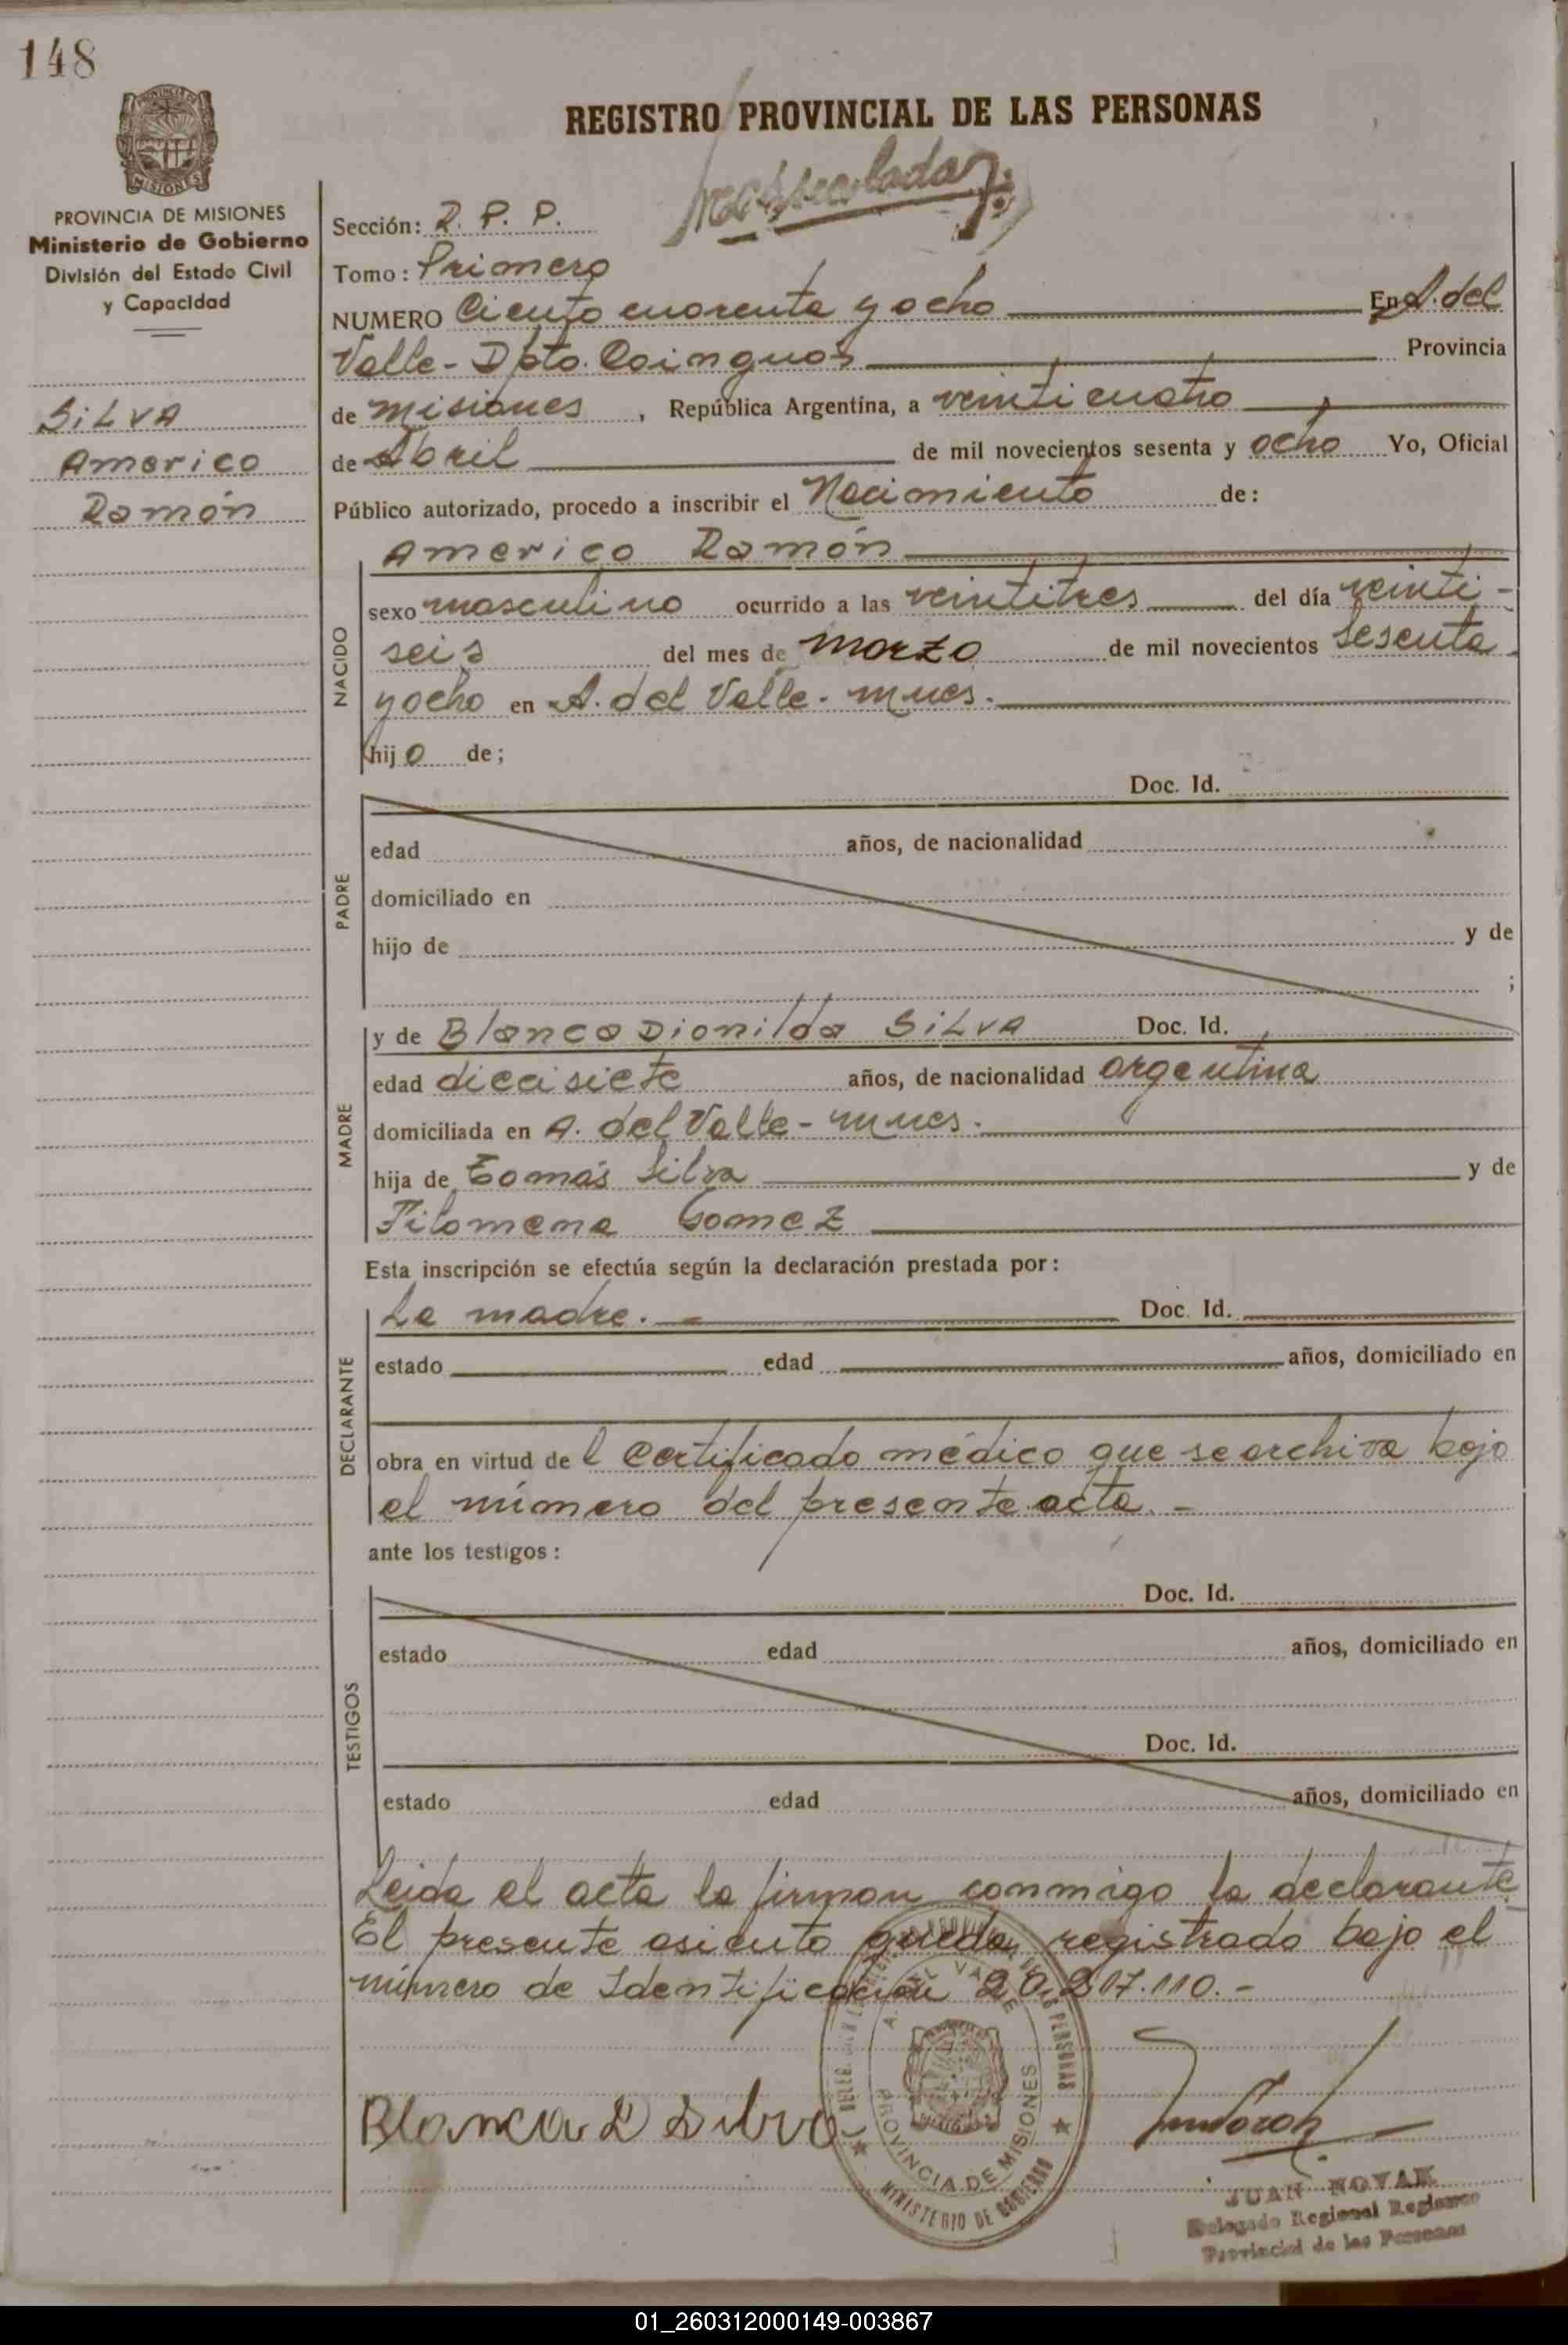 148
REGISTRO PROVINCIAL DE LAS PERSONAS
PROVINCIA DE MISIONES
Ministerio de Gobierno
División del Estado Civil
y Capacidad
SILVA
Americo
Ramón
Sección: R. P. P.
Tomo: Primero
NUMERO Ciento cuarenta y ocho En A. del
Valle - Dpto. Cainguas Provincia
de Misiones, República Argentina, a veinticuatro
de Abril de mil novecientos sesenta y ocho Yo, Oficial
Público autorizado, procedo a inscribir el Nacimiento de:
Americo Ramón
NACIDO
sexo masculino ocurrido a las veintitres del día veinti-
seis del mes de marzo de mil novecientos sesenta
y ocho en A. del Valle - Mnes.
hijo de;
PADRE
Doc. Id.
edad años, de nacionalidad
domiciliado en
hijo de y de
;
MADRE
y de Blanca Dionilda SILVA Doc. Id.
edad diecisiete años, de nacionalidad argentina
domiciliada en A. del Valle - Mnes.
hija de Tomás Silva y de
Filomena Gomez
Esta inscripción se efectúa según la declaración prestada por:
DECLARANTE
La madre. - Doc. Id.
estado edad años, domiciliado en
obra en virtud del Certificado médico que se archiva bajo
el número del presente acta. -
ante los testigos:
TESTIGOS
Doc. Id.
estado edad años, domiciliado en
Doc. Id.
estado edad años, domiciliado en
Leida el acta la firman conmigo la declarante
El presente asiento queda registrado bajo el
número de Identificación 20.217.110. -
Blanca D Silva
A. DEL VALLE
PROVINCIA DE MISIONES
MINISTERIO DE GOBIERNO
JUAN NOVAK
Delegado Regional Registro
Provincial de las Personas
01_260312000149-003867